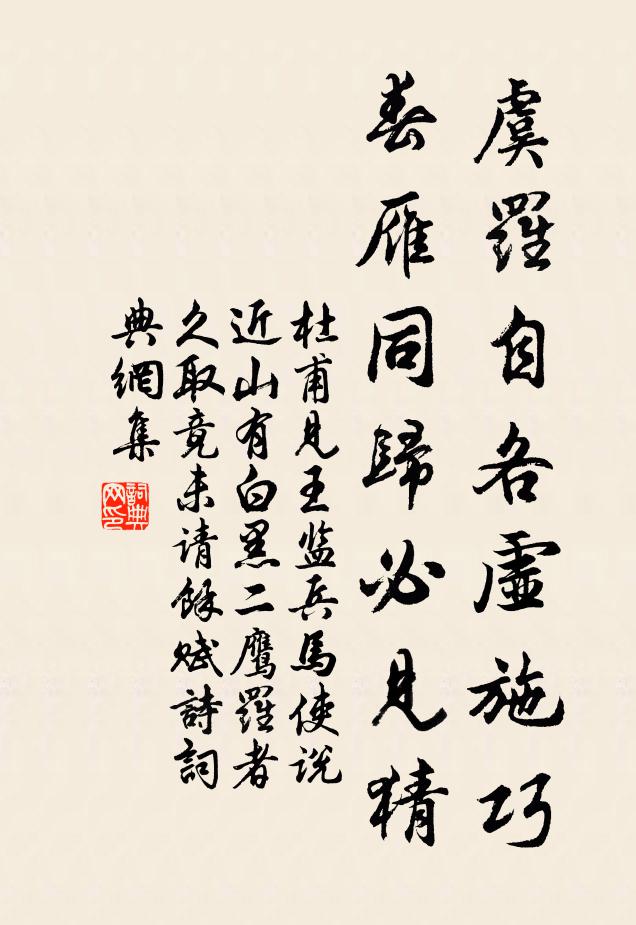 虞羅自各虛施巧
春雁同歸必見猜
杜甫見王监兵馬使说
近山有白黑二鹰羅者
久取竟未请餘赋詩詞
典網集
詞典网印